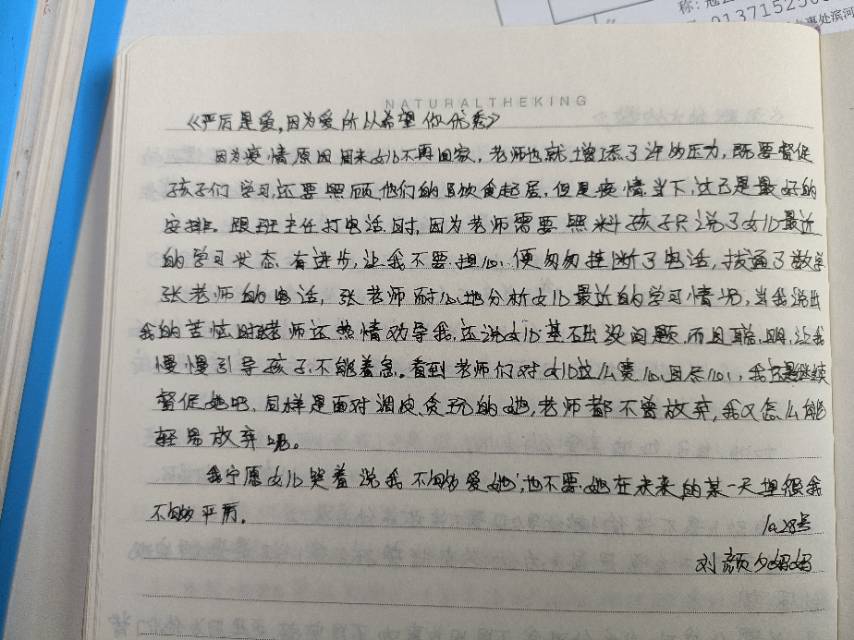 称:冠
01371525
事处滨河
NATURALTHEKING
《严厉是爱,因为爱所以希望你优秀》
因为疫情原因周末女儿不再回家,老师也就增添了许多压力,既要督促
孩子们学习还要照顾他们的日饮食起居,但是疫情当下,这已是最好的
安排。跟班主任打电话时,因为老师需要照料孩子只说了女儿最近
的学习状态有进步,让我不要担心,便匆匆挂断了电话,拔通了数学
张老师的电话,张老师耐心地分析女儿最近的学习情况,当我说出
我的苦恼时老师还热情劝导我,还说女儿基础没问题,而且聪明,让我
慢慢引导孩子,不能着急。看到老师们对女儿这么费心且尽心,我还是继续
督促她吧,同样是面对调皮贪玩的她,老师都不曾放弃,我又怎么能
轻易放弃呢。
我宁愿女儿哭着说我不够爱她,也不要她在未来的某一天埋怨我
不够严厉。
10.28号
刘颜夕妈妈